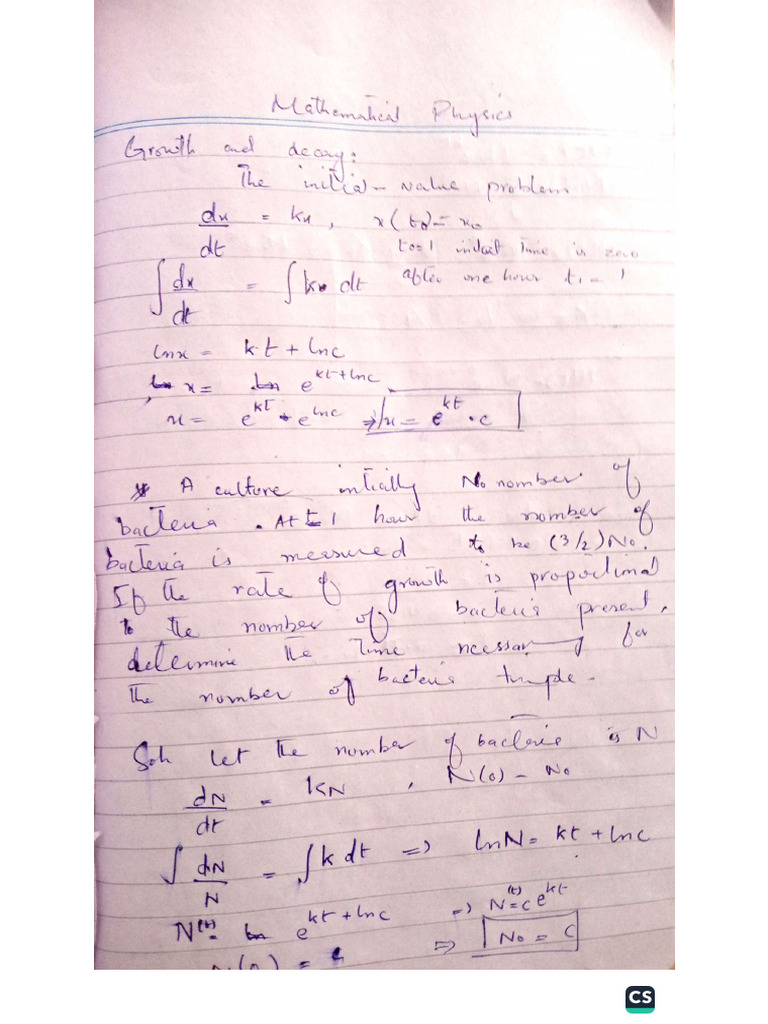 Mathematical Physics
Growth and decay:
The initial-value problem
dx/dt = kx, x(t0) = x0
t0=1 time is zero
∫ dx/dt = ∫ k dt after one hour t1 = 1
lnx = k.t + lnc
x = e^(kt+lnc)
x = e^(kt) e^(lnc) ⇒ x = e^(kt) . c
* A culture intially No nomber of
bacteria. At t=1 hour the nomber of
bacteria is measured to be (3/2) No.
If the rate of growth is propotional
to the nomber of bacteria present,
determine the time necessary for
the nomber of bacteria triple.
Soln Let the nomber of bacteria is N
dN/dt = kN, N(0) = No
∫ dN/N = ∫ k dt ⇒ lnN = kt + lnc
N(t) = e^(kt+lnc) ⇒ N(t) = c e^(kt)
N(0) = ⇒ No = C
CS